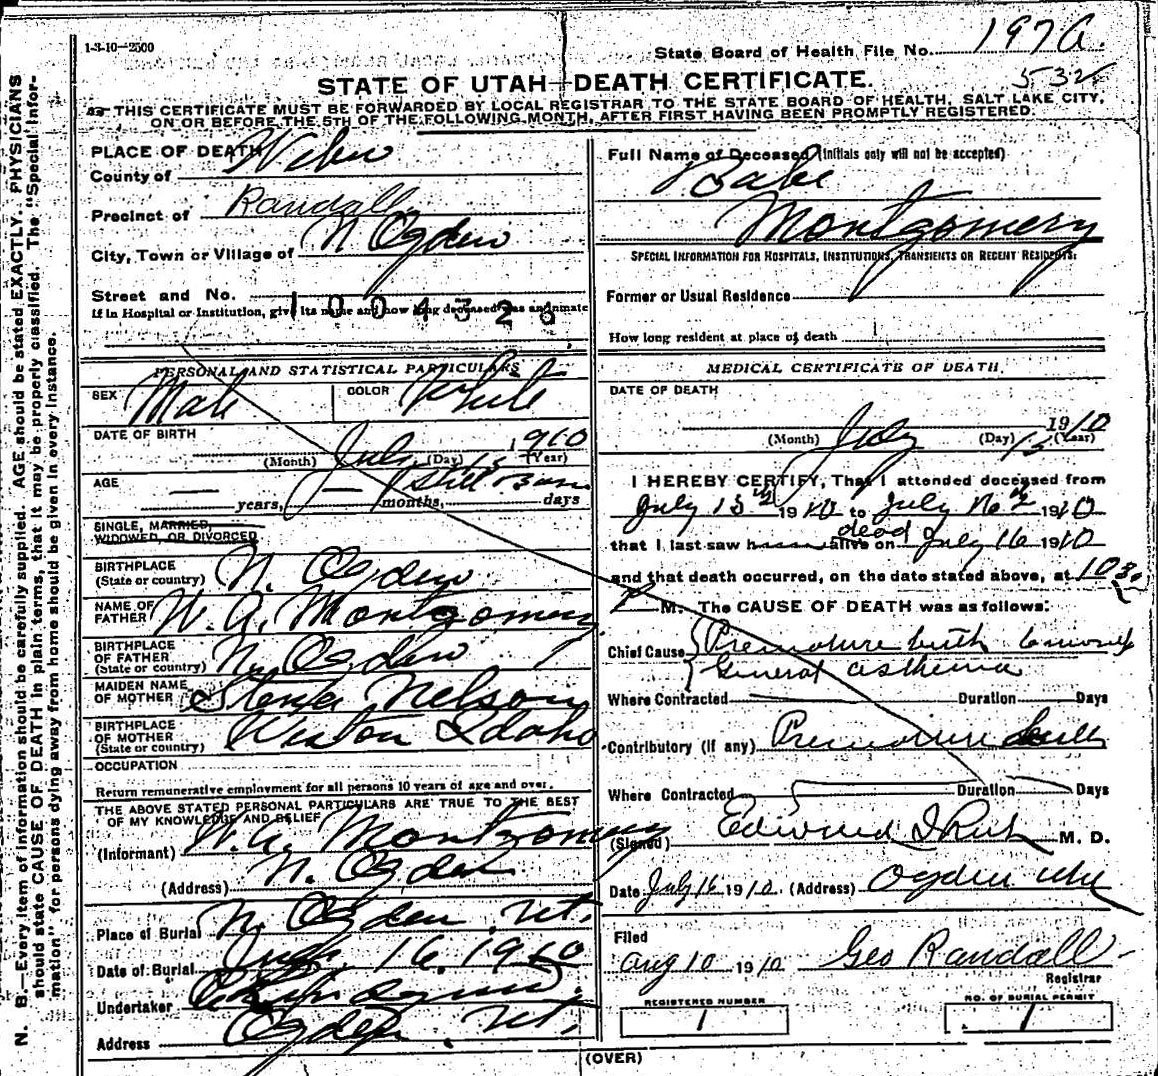 1-3-10-2500
State Board of Health File No. 197 a.
532
STATE OF UTAH—DEATH CERTIFICATE.
THIS CERTIFICATE MUST BE FORWARDED BY LOCAL REGISTRAR TO THE STATE BOARD OF HEALTH, SALT LAKE CITY,
ON OR BEFORE THE 5TH OF THE FOLLOWING MONTH, AFTER FIRST HAVING BEEN PROMPTLY REGISTERED.
N. B.—Every item of information should be carefully supplied. AGE should be stated EXACTLY. PHYSICIANS
should state CAUSE OF DEATH in plain terms, that it may be properly classified. The "Special Infor-
mation" for persons dying away from home should be given in every instance.
PLACE OF DEATH
County of Weber
Precinct of Randall
City, Town or Village of N Ogden
Street and No.
1004326
If in Hospital or Institution, give its name and how long deceased was an inmate
PERSONAL AND STATISTICAL PARTICULARS
SEX Male COLOR White
DATE OF BIRTH
July 15 1910
(Month) (Day) (Year)
AGE Still Born
years, months, days
SINGLE, MARRIED,
WIDOWED, OR DIVORCED
BIRTHPLACE
(State or country) N. Ogden
NAME OF
FATHER W. A. Montgomery
BIRTHPLACE
OF FATHER
(State or country) N. Ogden
MAIDEN NAME
OF MOTHER Nelson
BIRTHPLACE
OF MOTHER
(State or country) Weston Idaho
OCCUPATION
Return remunerative employment for all persons 10 years of age and over.
THE ABOVE STATED PERSONAL PARTICULARS ARE TRUE TO THE BEST
OF MY KNOWLEDGE AND BELIEF
(Informant) W. A. Montgomery
(Address) N. Ogden
Place of Burial N. Ogden, Ut.
Date of Burial July 16, 1910
Undertaker
Address Ogden, Ut.
Full Name of Deceased (Initials only will not be accepted)
Babe
Montgomery
SPECIAL INFORMATION FOR HOSPITALS, INSTITUTIONS, TRANSIENTS OR RECENT RESIDENTS.
Former or Usual Residence
How long resident at place of death
MEDICAL CERTIFICATE OF DEATH
DATE OF DEATH
July 15 1910
(Month) (Day) (Year)
I HEREBY CERTIFY, That I attended deceased from
July 15th 1910 to July 1910
that I last saw h alive on dead July 16 1910
and that death occurred, on the date stated above, at 10 30
P M. The CAUSE OF DEATH was as follows:
Chief Cause Premature birth 6 months
General asthenia
Where Contracted Duration Days
Contributory (if any) Premature birth
Where Contracted Duration Days
(Signed) Edward I Rich M. D.
Date July 16 1910 (Address) Ogden Utah
Filed
Aug 10 1910 Geo Randall
Registrar
REGISTERED NUMBER
1
NO. OF BURIAL PERMIT
1
(OVER)